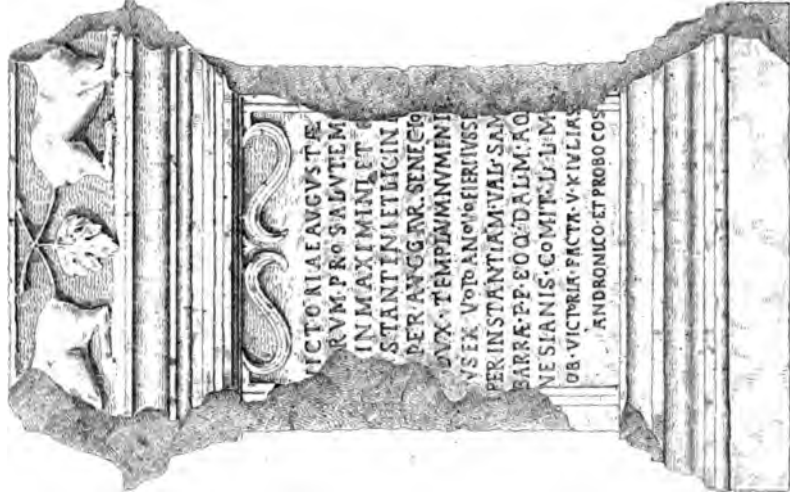 VICTORIAE AVGVSTÆ
RVM·PRO SALVTEM
IN MAXIMINI·ET C
STANTINI·ET LICIN
PER AVGG GAR·SENECIO
DVX·TEMPLVM NVMINI
VS EX VOTO A NOVO FIERI IVSSE
PER INSTANTIAM VAL·SAM
BARRÆ·P·P·EQQ·DALM·AQ
NESIANIS·COMIT·L·L·M
OB·VICTORIA·FACTA·V·K·IVLIAS
ANDRONICO·ET·PROBO COS